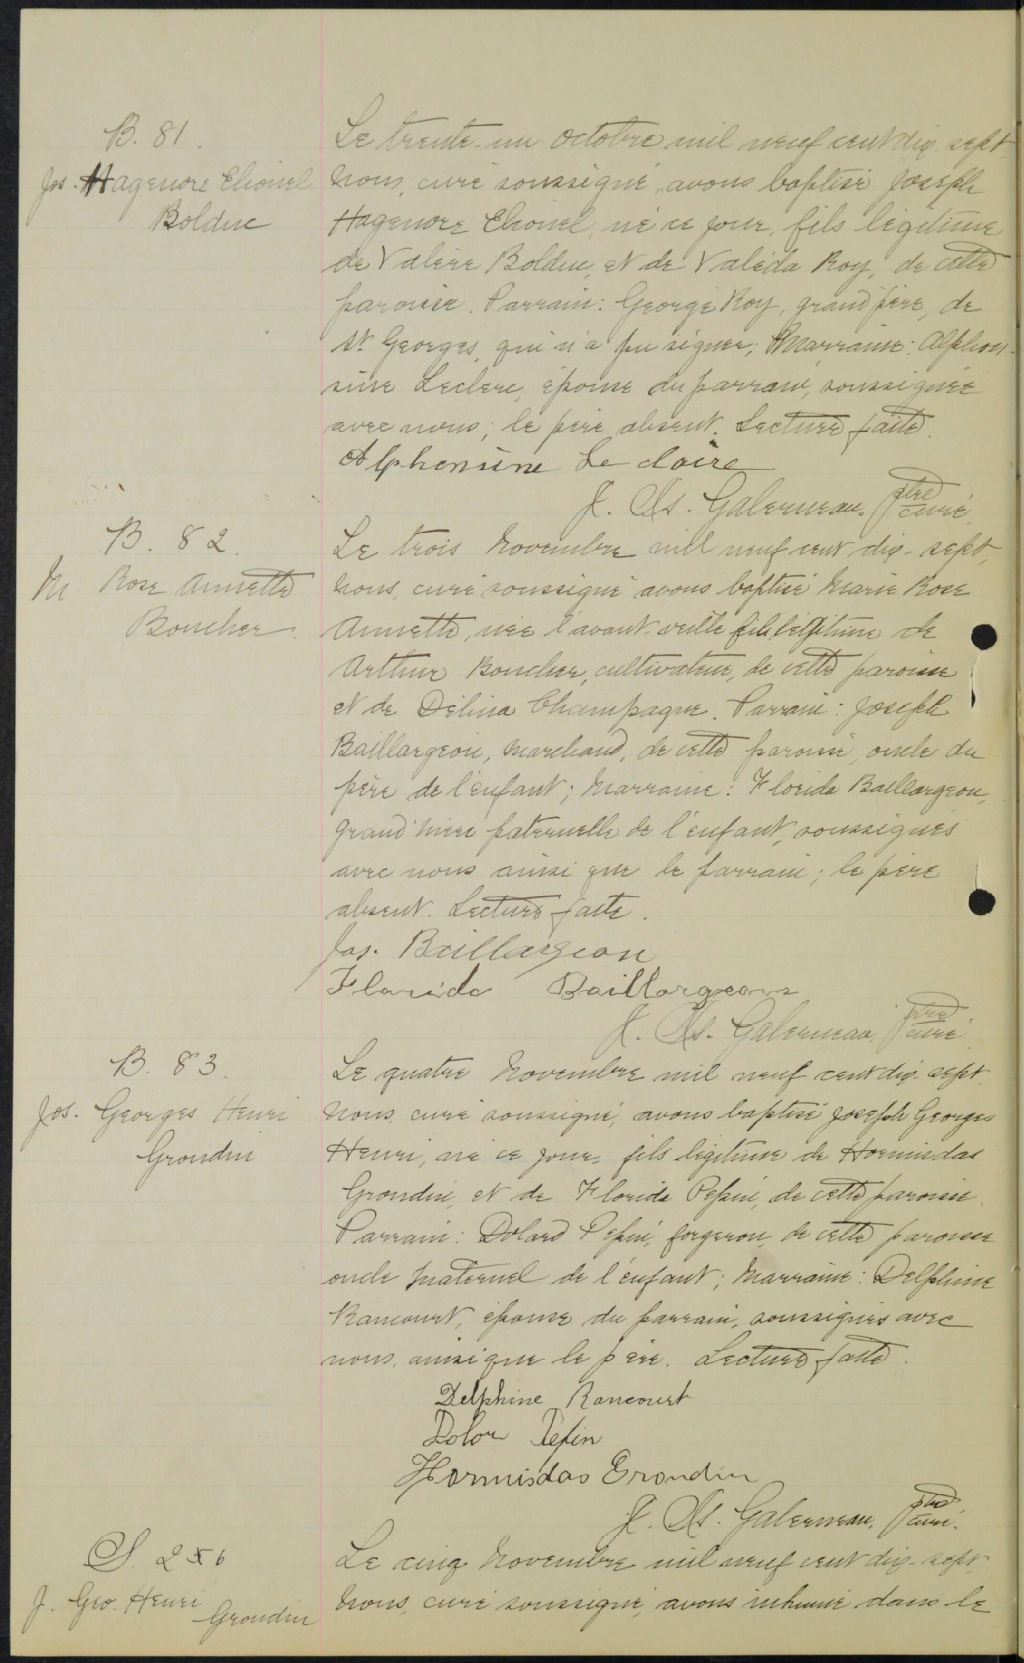 B. 81.
Jos. Hagenore Elionel
Bolduc
Le trente-un octobre mil neuf cent dix-sept,
nous, curé soussigné, avons baptisé Joseph
Hagenore Elionel, né ce jour, fils légitime
de Valère Bolduc, et de Valéda Roy, de cette
paroisse. Parrain: George Roy, grand père, de
St Georges, qui n'a pu signer; Marraine: Alphon-
sine Leclerc, épouse du parrain, soussignée
avec nous; le père absent. Lecture faite.
Alphonsine Le claire
J. As. Galerneau, ptre curé.
B. 82.
M. Rose Annette
Boucher.
Le trois Novembre mill neuf cent dix-sept,
nous, curé soussigné avons baptisé Marie Rose
Annette, née l'avant-veille fille légitime de
Arthur Boucher, cultivateur, de cette paroisse
et de Délina Champagne. Parrain: Joseph
Baillargeon, marchand, de cette paroisse, oncle du
père de l'enfant; Marraine: Florida Baillargeon,
grand'mère paternelle de l'enfant, soussignés
avec nous ainsi que le parrain; le père
absent. Lecture faite.
Jos. Baillargeon
Florida Baillargeons
J. As. Galerneau, ptre curé
B. 83.
Jos. Georges Henri
Grondin
Le quatre Novembre mil neuf cent dix-sept,
nous, curé soussigné, avons baptisé Joseph Georges
Henri, né ce jour, fils légitime de Hormisdas
Grondin, et de Florida Pepin, de cette paroisse.
Parrain: Dolard Pepin, forgeron, de cette paroisse
oncle maternel de l'enfant; Marraine: Delphine
Rancourt, épouse du parrain, soussignés avec
nous, ainsi que le père. Lecture faite.
Delphine Rancourt
Dolor Pepin
Hormisdas Grondin
J. As. Galerneau, ptre curé.
S. 256
J. Geo. Henri
Grondin
Le cinq Novembre mil neuf cent dix-sept,
nous, curé soussigné, avons inhumé dans le